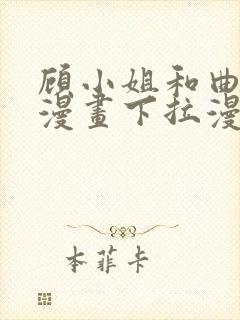 顾小姐和曲
漫畫下拉漫
本菲卡